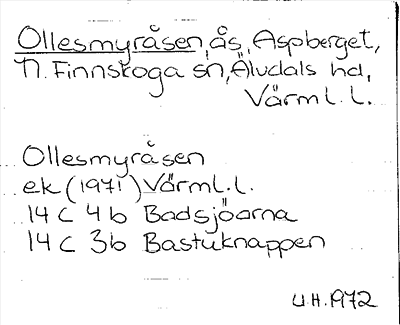 Ollesmyråsen, ås, Aspberget,
N. Finnskoga sn, Älvdals hd,
Värml. l.
Ollesmyråsen
ek (1971) Värml. l.
14 C 4b Badsjöarna
14 C 3b Bastuknappen
U.H. 1972